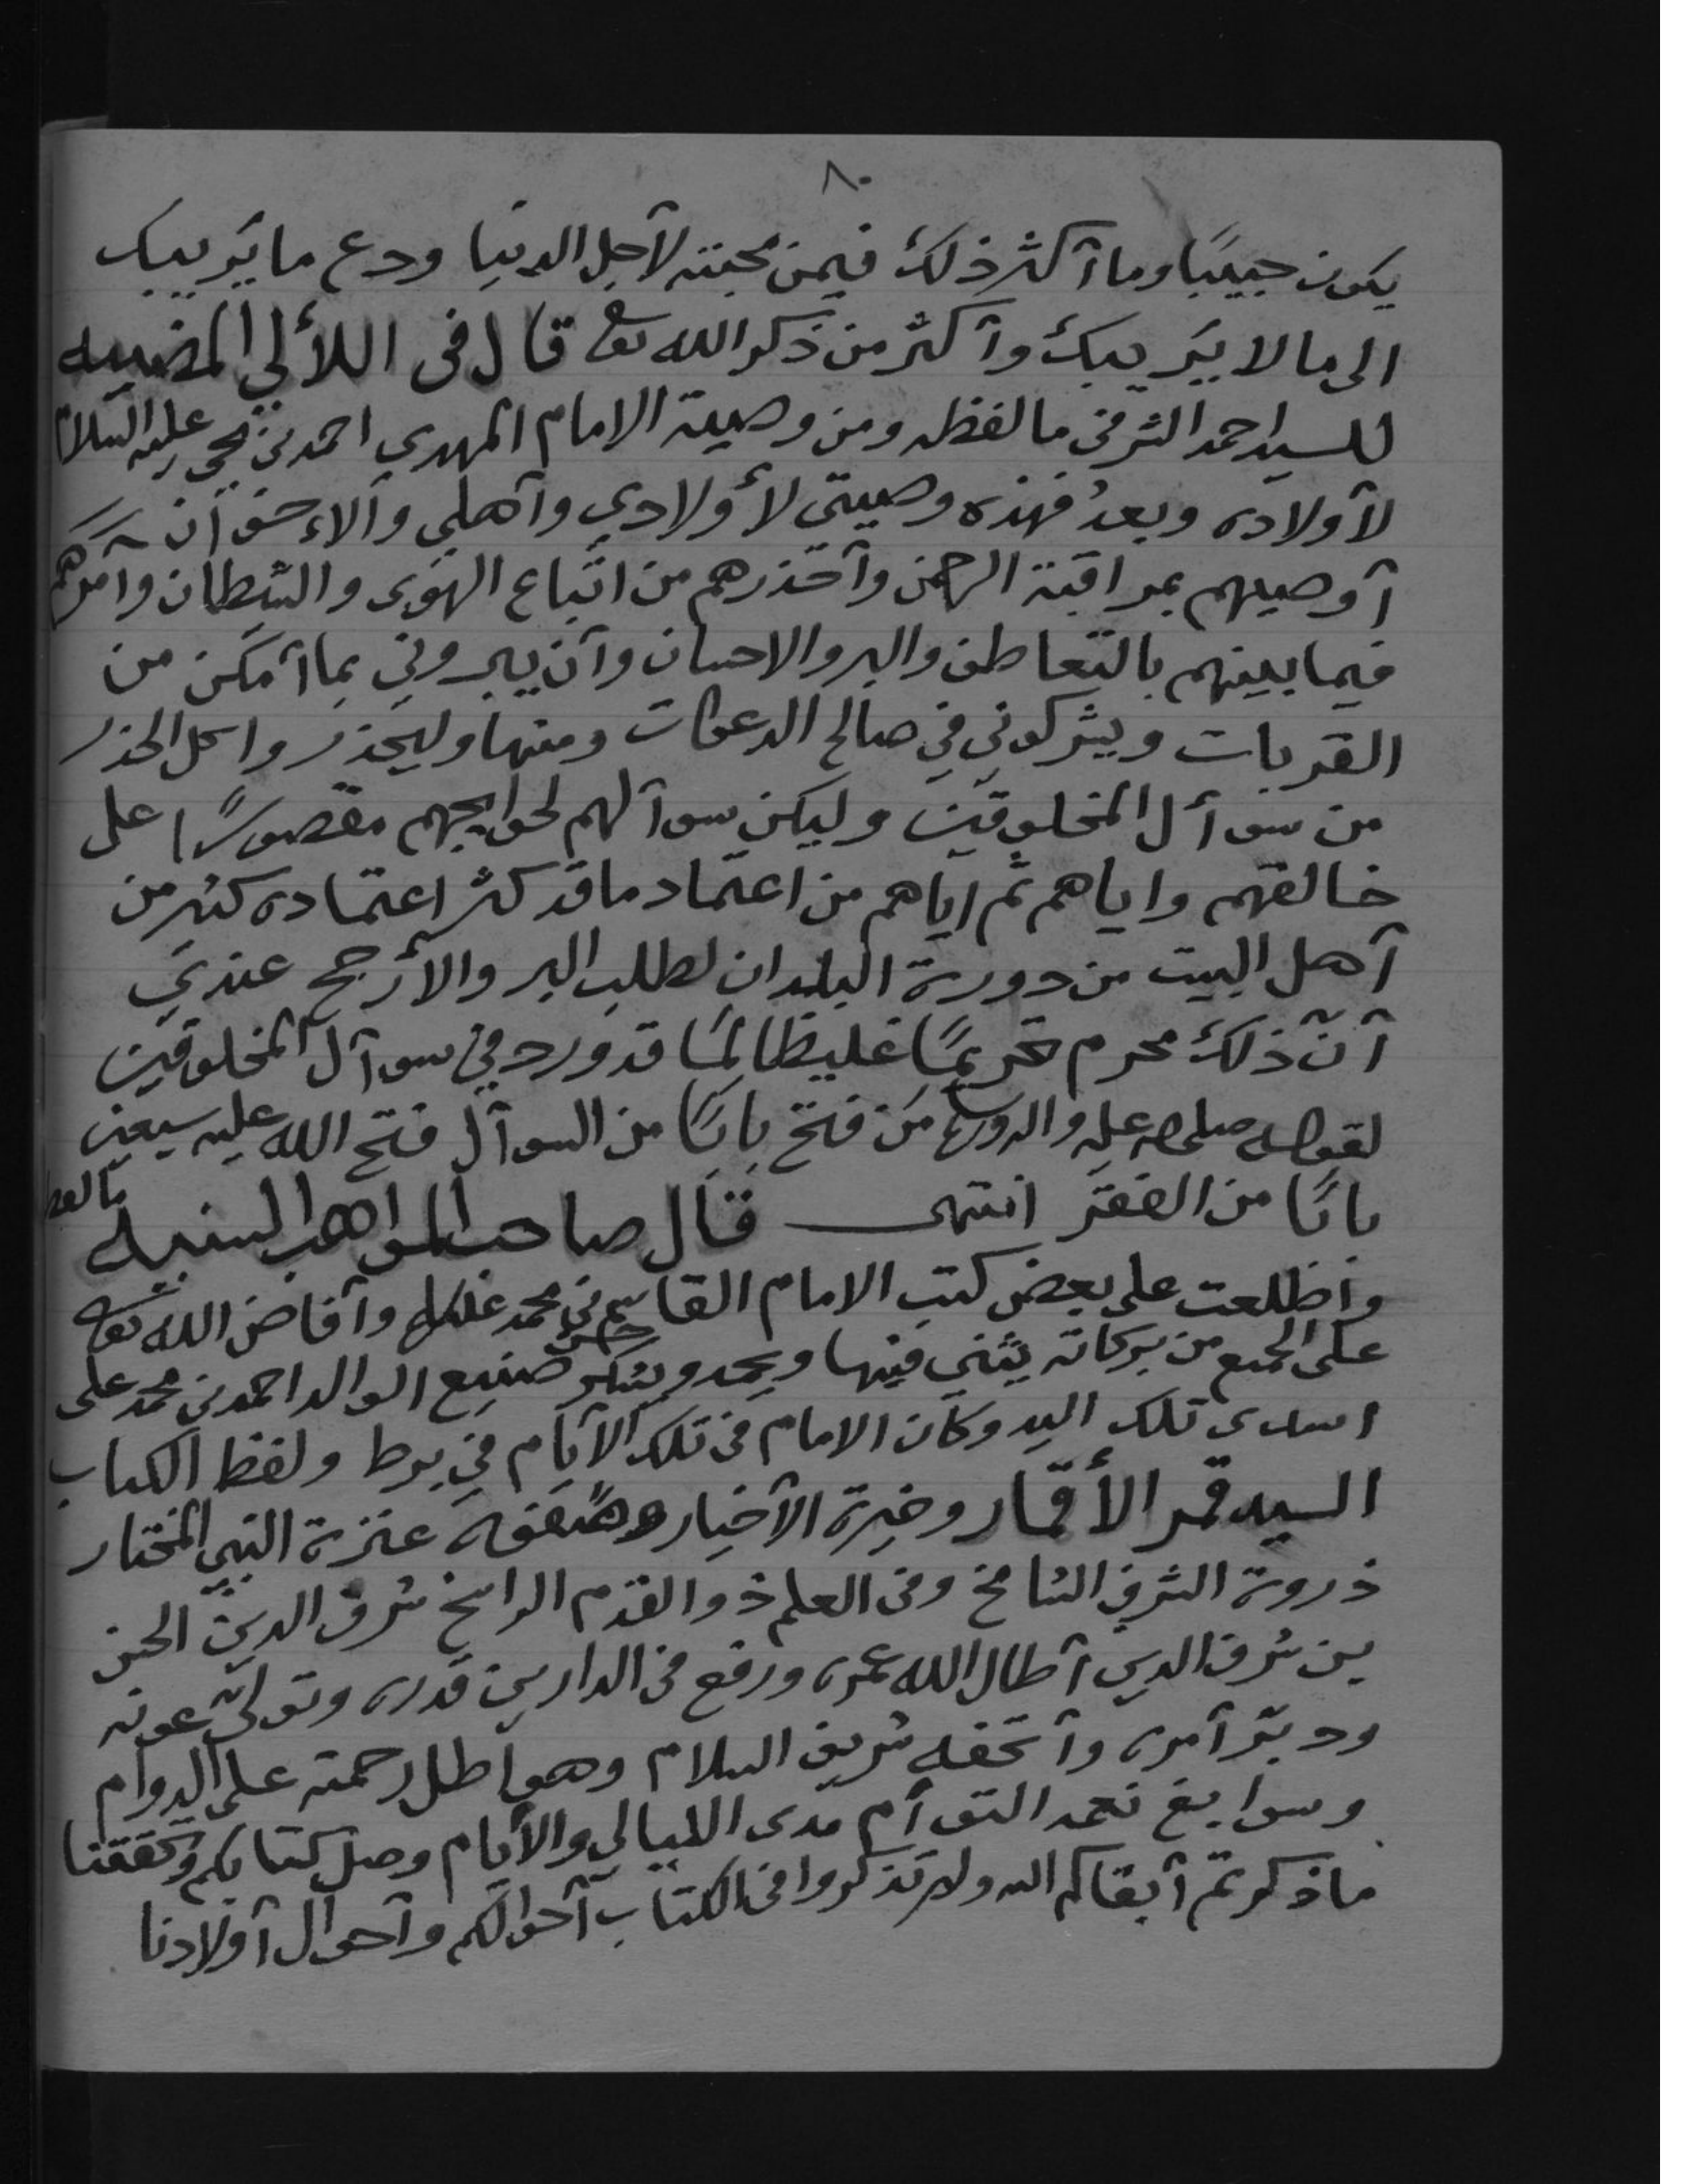 ٨٠
يكون حبيبًا وما أكثر ذلك فيمن محبته لأجل الدنيا ودع ما يريبك
الى ما لا يريبك وأكثر من ذكر الله تعا قال فى اللألي المضيه
للسيد احمد الشرفي ما لفظه ومن وصية الامام المهدي احمد بن يحي عليه السلام
لأولاده وبعدُ فهذه وصيتى لأولادي وأهلي والاخوان
أوصيهم بمراقبة الرحمن وأحذرهم من اتباع الهوى والشيطان وآمرهم
فيما بينهم بالتعاطف والبر والاحسان وأن يبروني بما أمكن من
القربات ويشركوني في صالح الدعوات ومنها وليحذروا كل الحذر
من سوأل المخلوقين وليكن سوآلهم لحوايجهم مقصورًا على
خالقهم واياهم ثم اياهم من اعتماد ما قد كثر اعتماده كثير من
أهل البيت من دورة البلدان لطلب البر والأرجح عندي
أن ذلك محرم تحريمًا غليظا لمَا قد ورد في سوآل المخلوقين
لقوله صلى الله عليه واله وسلم من فتح بابًا من السوآل فتح الله عليه سبعين
بابًا من الفقر انتهى قال صاحب المواهب السنيه ما لفظه
واطلعت على بعض كتب الامام القاسم بن محمد وأفاض الله تعا
على الجميع من بركاته يثني فيها ويحمد ويشكر حسن صنيع الوالد احمد بن محمد على
اسدى تلك اليد وكان الامام فى تلك الأيام في برط ولفظ الكتاب
السيد قمر الأقمار وخيرة الأخيار عترة النبي المختار
ذروة الشرف الشامخ وفى العلم ذو القدم الراسخ شرف الدين الحسن
بن شرف الدين أطال الله عمره ورفع فى الدارين قدره وتولى عونه
ودبّر أمره وأتحفه شريف السلام وهواطل رحمته على الدوام
وسوابغ نعمه التوآم مدى الليالي والأيام وصل كتابكم وتحققنا
ما ذكرتم أبقاكم الله ولم تذكروا فى الكتاب أحوالكم وأحوال أولادنا